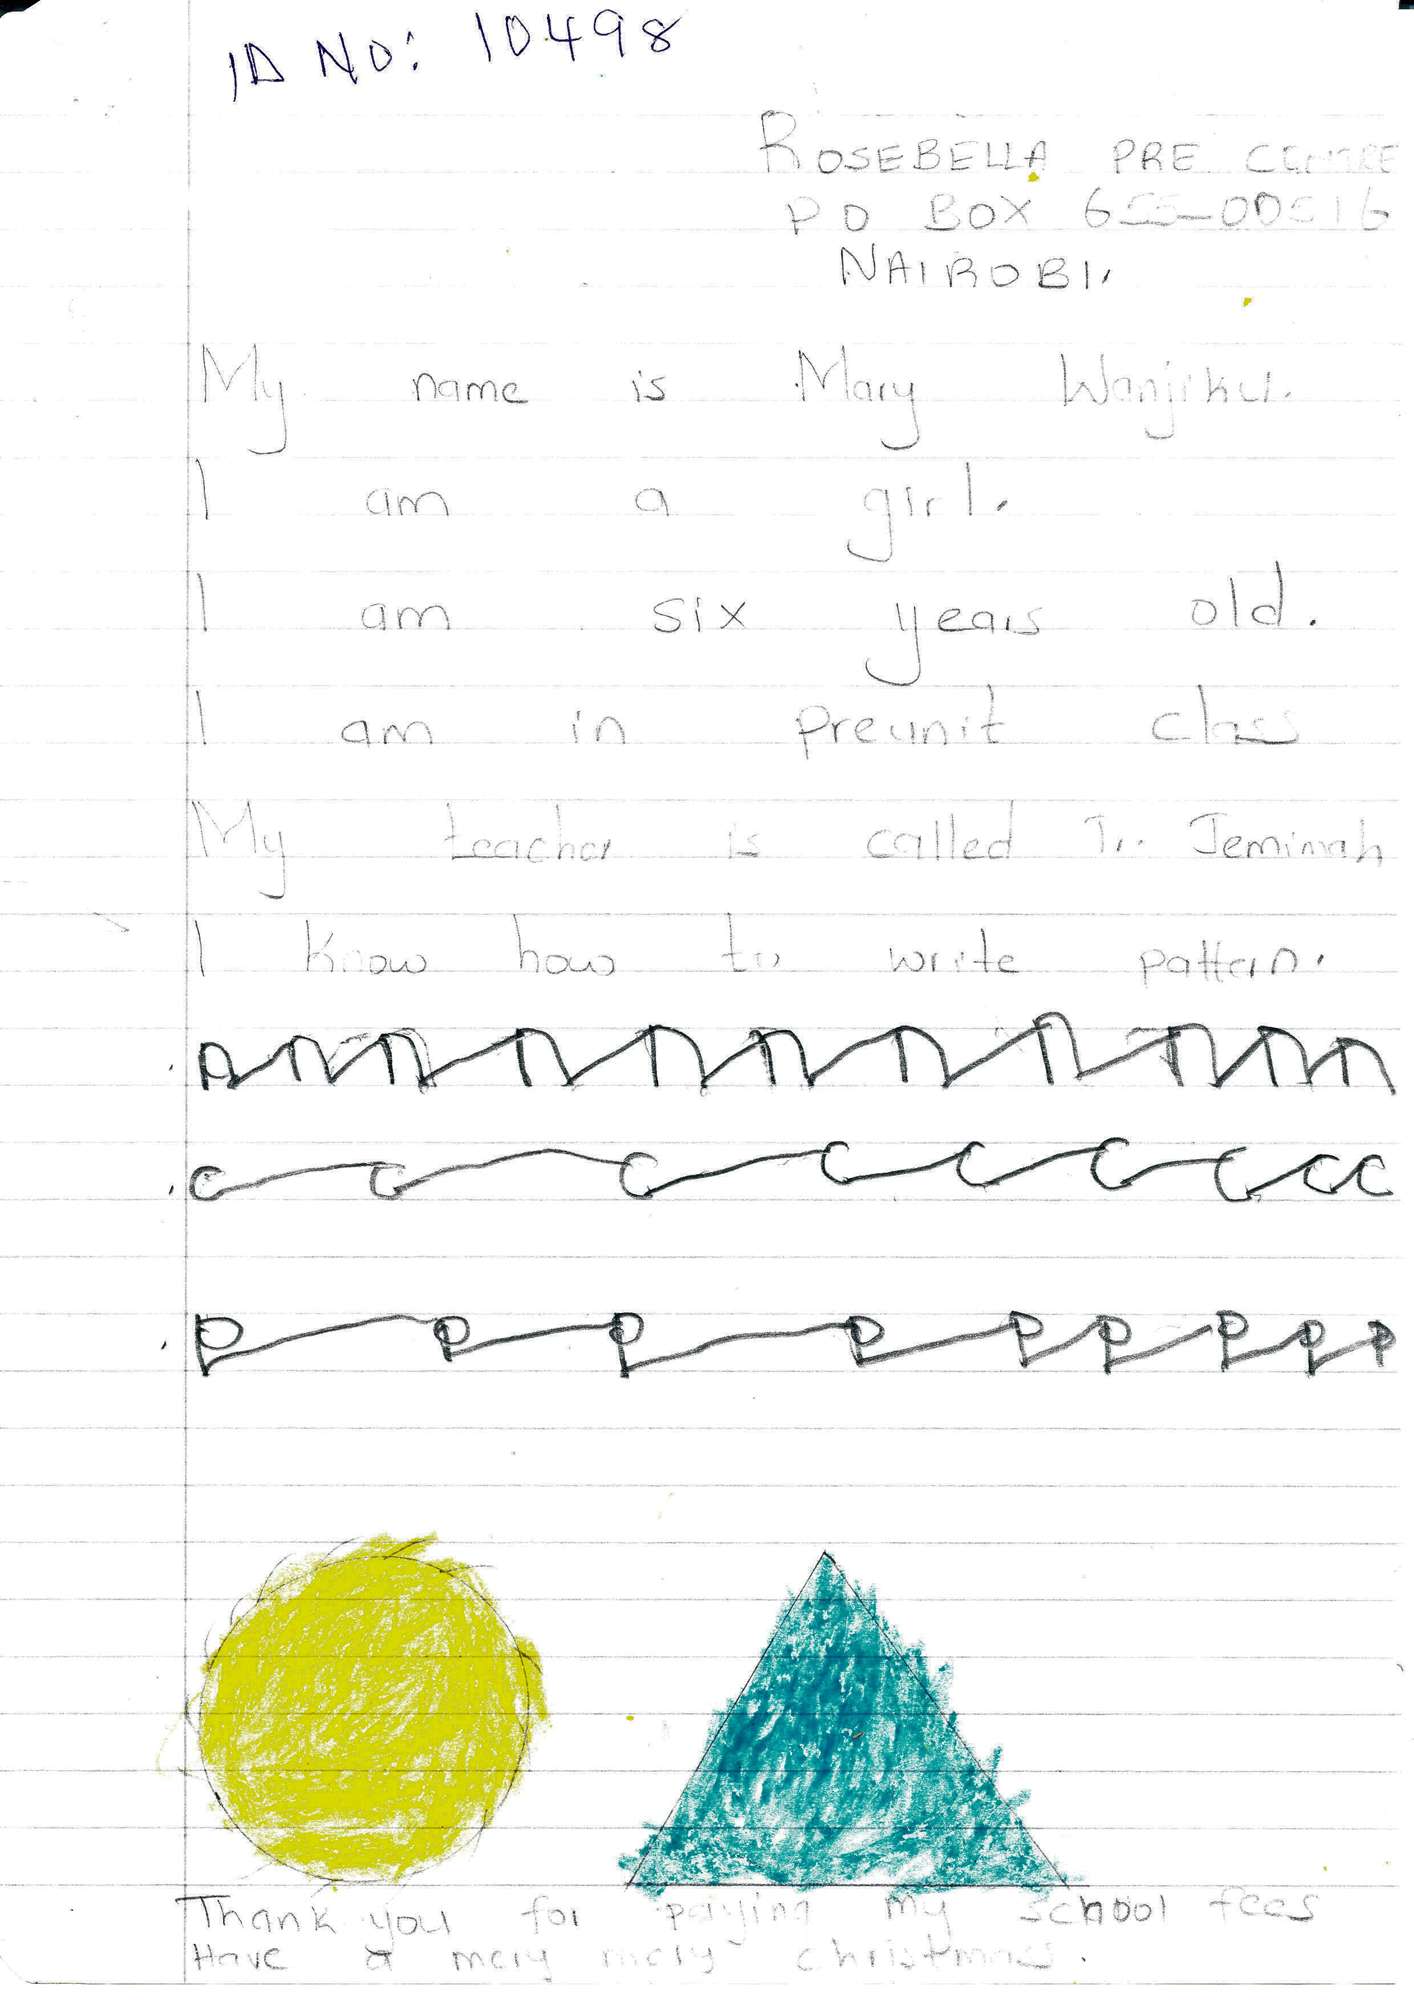 ID NO: 10498
ROSEBELLA PRE CENTRE
PO BOX 655-00516
NAIROBI.
My name is Mary Wanjiku.
I am a girl.
I am six years old.
I am in preunit class
My teacher is called Tr. Jemimah
I know how to write pattern.
n n n n n n n n n n n
c c c c c c c c c
p p p p p p p p p
Thank you for paying my school fees
Have a mery mery christmas.